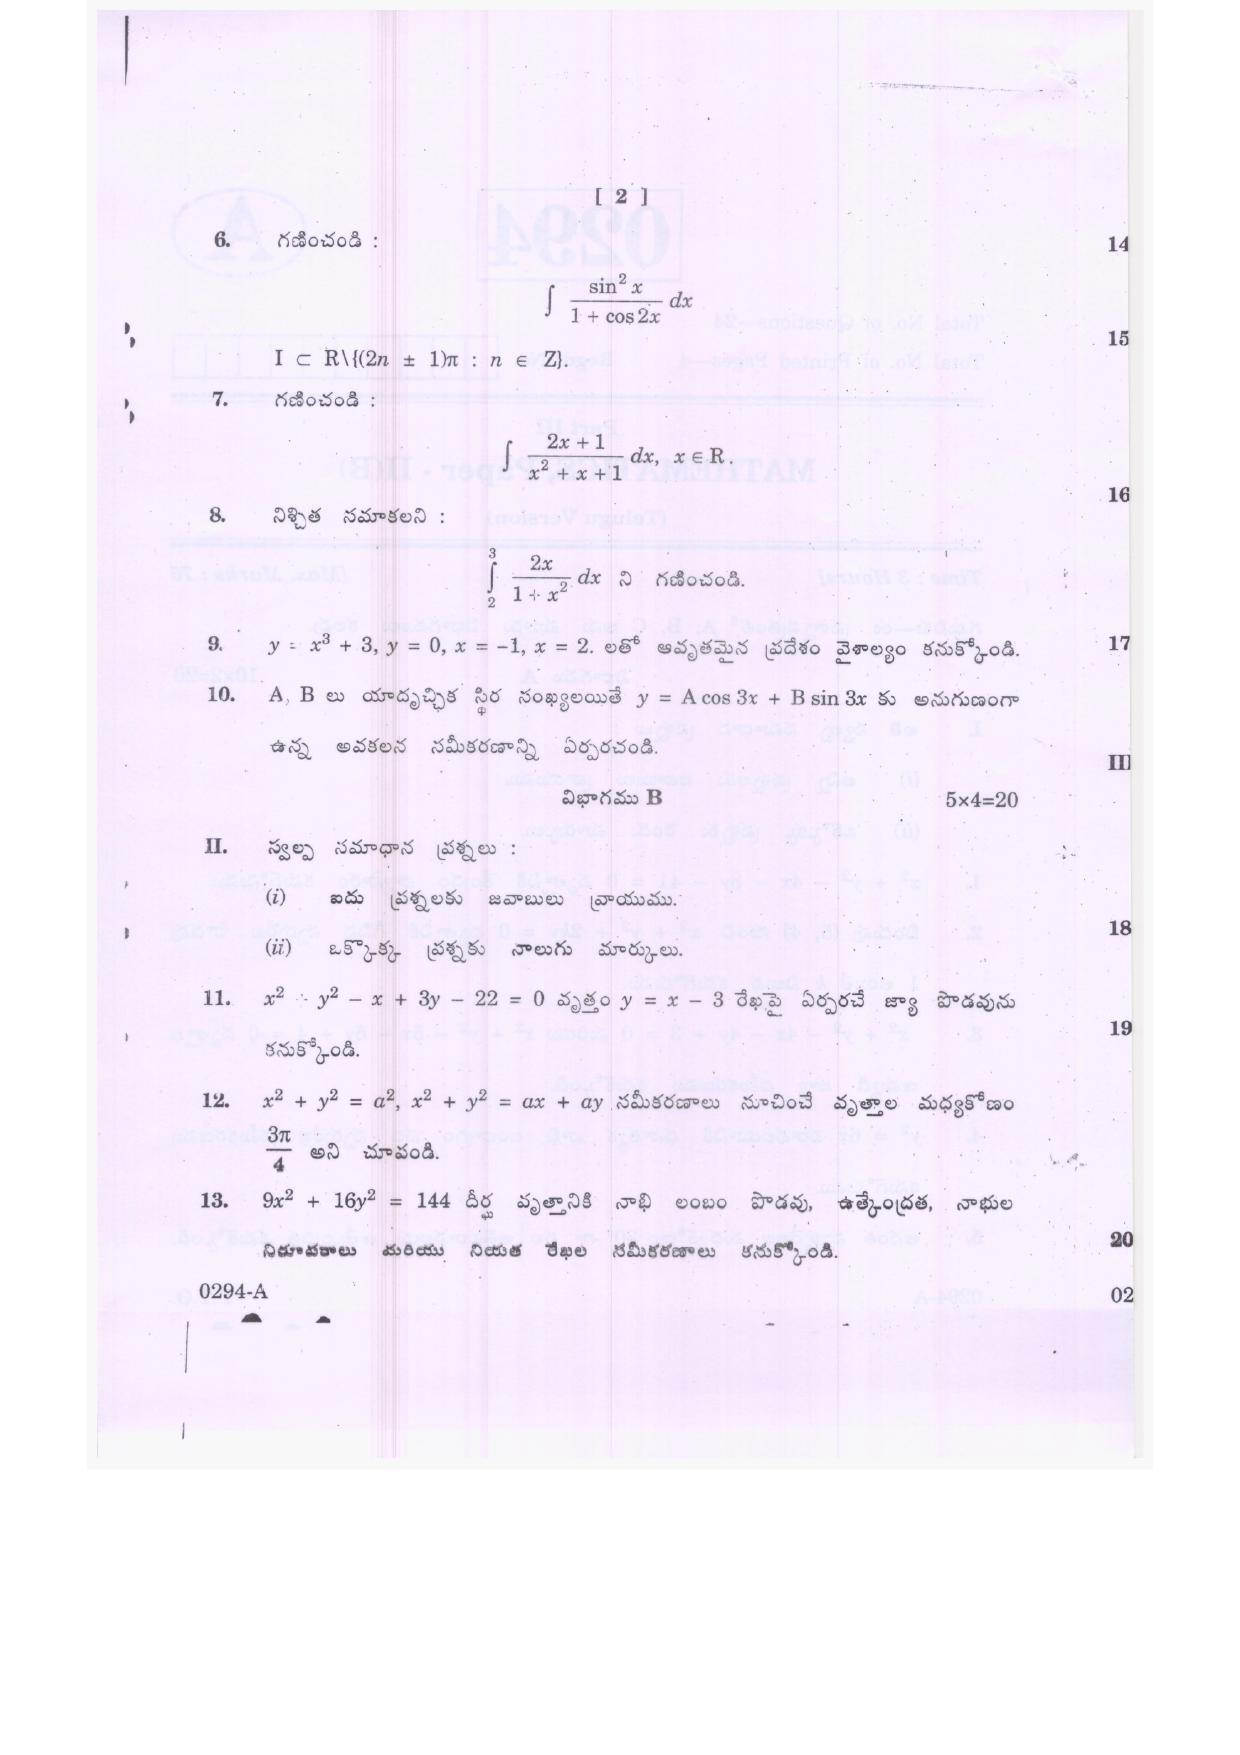 [ 2 ]
6. గణించండి :
∫ sin² x / 1 + cos 2x dx
I ⊂ R\{(2n ± 1)π : n ∈ Z}.
7. గణించండి :
∫ 2x + 1 / x² + x + 1 dx, x ∈ R.
8. నిశ్చిత సమాకలని :
∫₂³ 2x / 1 + x² dx ని గణించండి.
9. y = x³ + 3, y = 0, x = –1, x = 2. లతో ఆవృతమైన ప్రదేశం వైశాల్యం కనుక్కోండి.
10. A, B లు యాదృచ్ఛిక స్థిర సంఖ్యలయితే y = A cos 3x + B sin 3x కు అనుగుణంగా
ఉన్న అవకలన సమీకరణాన్ని ఏర్పరచండి.
విభాగము B 5×4=20
II. స్వల్ప సమాధాన ప్రశ్నలు :
(i) ఐదు ప్రశ్నలకు జవాబులు వ్రాయుము.
(ii) ఒక్కొక్క ప్రశ్నకు నాలుగు మార్కులు.
11. x² + y² – x + 3y – 22 = 0 వృత్తం y = x – 3 రేఖపై ఏర్పరచే జ్యా పొడవును
కనుక్కోండి.
12. x² + y² = a², x² + y² = ax + ay సమీకరణాలు సూచించే వృత్తాల మధ్యకోణం
3π / 4 అని చూపండి.
13. 9x² + 16y² = 144 దీర్ఘ వృత్తానికి నాభి లంబం పొడవు, ఉత్కేంద్రత, నాభుల
నిరూపకాలు మరియు నియత రేఖల సమీకరణాలు కనుక్కోండి.
0294-A
14
15
16
17
III
18
19
20
02